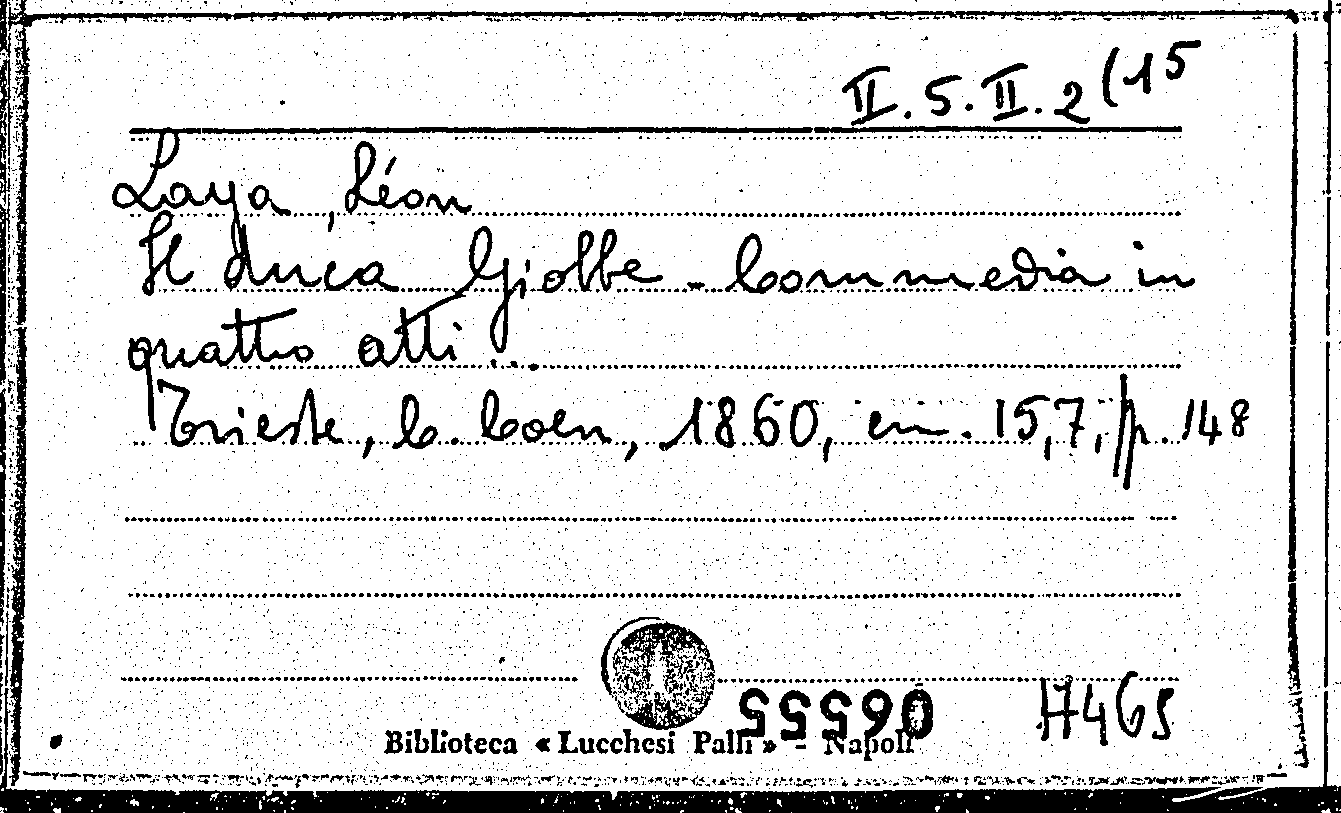 II.5.II.2(15
Laya, Léon
Il duca Giobbe - Commedia in
quattro atti...
Trieste, C. Coen, 1860, cm. 15,7, p. 148
06555
Biblioteca « Lucchesi Palli » - Napoli